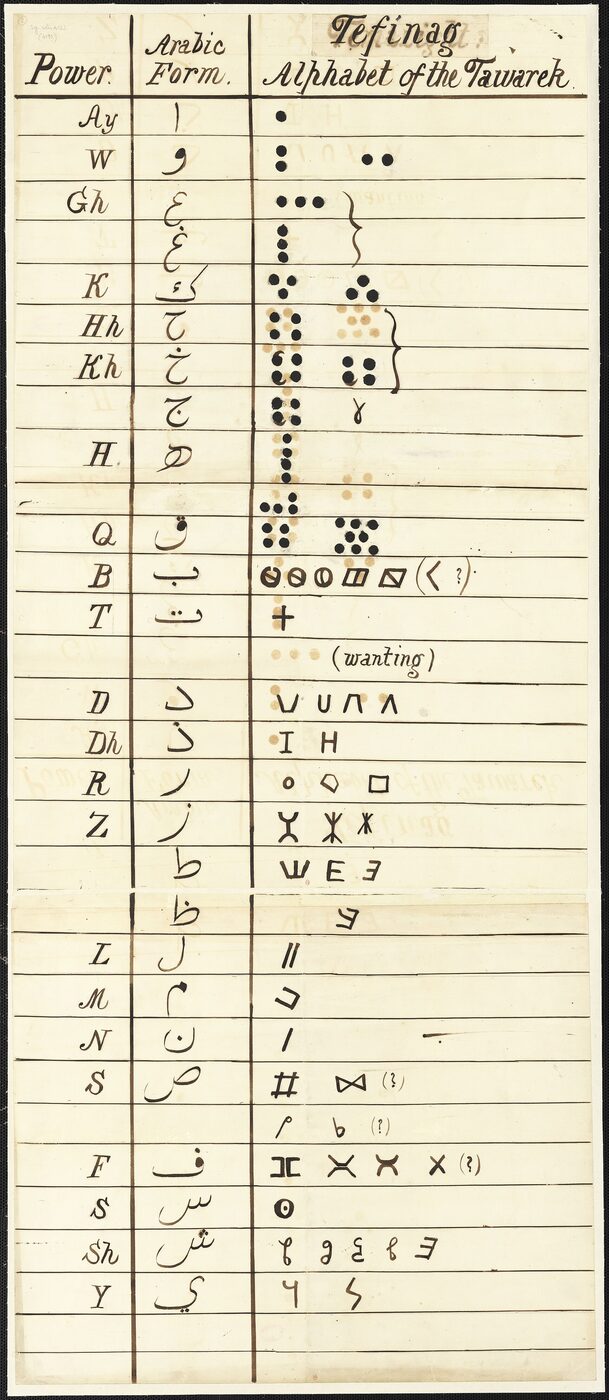 Tefinag
Power. Arabic Form. Alphabet of the Tawarek.
Ay ا •
W و : ••
Gh ع •••
غ ⵗ
K ك ⵈ ∴
Hh ح
Kh خ ⸬
ج
H. ه
Q ق
B ب ⴱ ( < ?)
T ت +
(wanting)
D د V U Π Λ
Dh ذ I H
R ر ○ □
Z ز ⵣ
ط Ш E Ǝ
ظ
L ل ||
M م ⊐
N ن /
S ص # ⋈ (?)
(?)
F ف ][ X (?)
S س ⊙
Sh ش Ǝ
Y ي